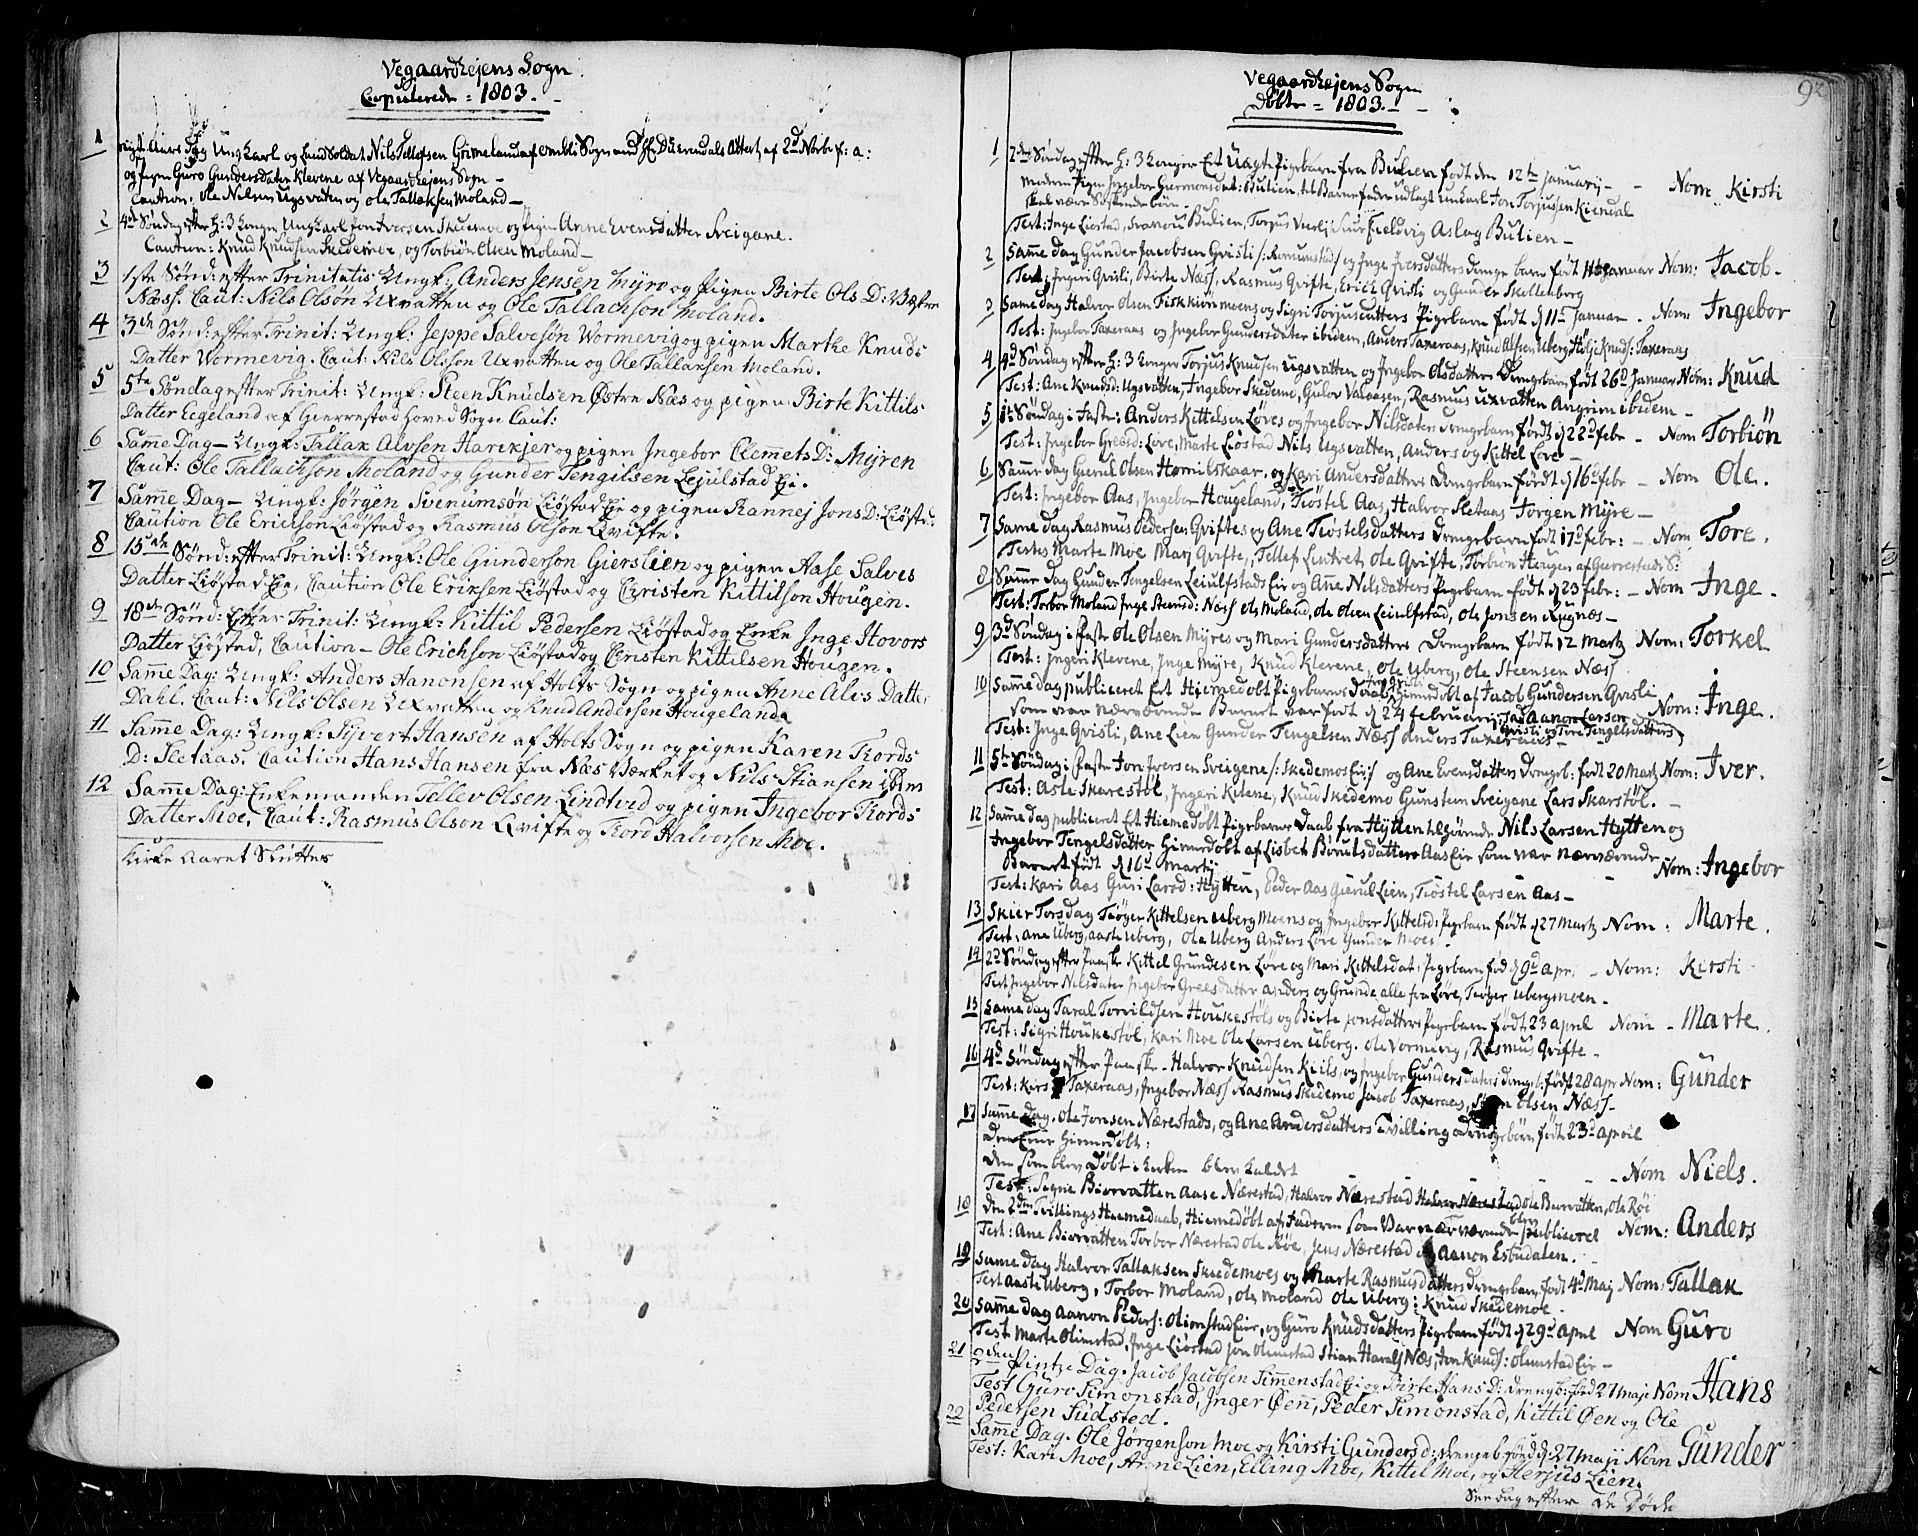 Vegaardhejens Sogn
Copulerede = 1803.
1
Aars Dag Ung Karl og Land Soldat Nils Tellefsen Grimeland af Omlie Sogn af 2d
og Pigen Guro Gundersdatter Klevene af Vegaardhejens Sogn –
Caution. Ole Nilsen Ugsvatten og Ole Tallaksen Moland –
2 4de Søndag efter H: 3 Konger Ung Karl Jon Iversen Skedemoe og Pigen Anne Evensdatter Sveigane.
Caution: Knud Knudsen Skedemoe, og Torbiørn Olsen Moland –
3 1ste Sønd: efter Trinitatis Ungk: Anders Jensen Myro og pigen Birte Ols D: Væstre
Næss. Caut: Nils Olsøn Uxvatten og Ole Tallachson Moland.
4 3de Sønd: efter Trinit: Ungk: Jeppe Salvesøn Wormevig og pigen Marthe Knuds
Datter Wormevig. Caut: Nils Olsson Uxvatten og Ole Tallaksen Moland.
5 5te Søndag efter Trinit: Ungk: Steen Knudsen Østre Næs og pigen Birte Kittils
Datter Eegeland af Gierrestad Hoved Sogn Caut:
6 Samme Dag – Ungk: Tallak Alvsen Harekjer og pigen Ingebor Clemmets D: Myren
Caut: Ole Tallachson Moland og Gunder Tengilsen Lejulstad Eje.
7 Samme Dag – Ungk: Jørgen Svenumsøn Liøstad Eje og pigen Rannej Jons D: Liøstad.
Caution Ole Erichson Liøstad og Rasmus Olson Qvifte.
8 15de Sønd: efter Trinit: Ungk: Ole Gunderson Gierslien og pigen Aase Salves
Datter Liøstad Eje, Caution Ole Eriksen Liøstad og Christen Kittilson Hougen.
9 18de Sønd: Efter Trinit: Ungk: Kittil Pedersen Liøstad og Enke Inge Hovors
Datter Liøstad, Caution – Ole Erichson Liøstad og Christen Kittilsen Hougen.
10 Samme Dag: Ungk: Anders Hanonsen af Holts Sogn og pigen Anne Alvs Datter
Dahl. Caut: Nils Olsen Uxvatten og Knud Andersen Hougeland.
11 Samme Dag: Ungk: Sivert Hansen af Holts Sogn og pigen Karen Tords
D: Sletaas. Caution Hans Hansen fra Næs Værket og Nils Stiansen ibim
12 Samme Dag: Enkemanden Tellev Olsen Lindtved og pigen Ingebor Tords
Datter Moe, Caut: Rasmus Olson Qvifte og Tord Halvorsen Moe.
Kirke Aaret Sluttes
Vegaardhejens Sogn
Døbte = 1803.
92
1 2den Søndag efter H: 3 Konger Et Uægte Pigebarn fra Bulien født den 12te Januarij – – Nom. Kirsti
Moderen Pigen Ingebor Giermonsdat: Bulien, til Barnefader udlagt Unkarl Jon Torjussen Kiendal
skal være Søskende børn.
Test: Inge Liøstad, Bulien, Torjus Aslag Bulien –
2 Samme Dag Gunder Jacobsen Gvisli og Inge Iversdatters Drenge barn født 11te Januar Nom: Jacob.
Test: Ingeri Gvisli, Birte Næss, Rasmus Gvifte, Erich Gvisli og Gunder Skollenborg
3 Same dag Halvor Olsen Fiskkionmoens og Sigri Torjusdatters Pigebarn født d 11te Januar. Nom: Ingebor
Test: Ingebor Taxeraas og Ingebor Gundersdatter ibidem, Anders Taxeraas, Knud Alfsen Uberg, Knuds: Taxeraas
4 4d Søndag efter H: 3 Konger Torjus Knudsen Ugsvatten og Ingebor Olsdatters Drengebarn født 26d Januar Nom: Knud
Test: Ane Knudsd: Ugsvatten, Ingebor Skedemo, Gulov Valaasen, Rasmus Uxvatten Angrim ibidem –
5 1st Søndag i Faste: Anders Kittelsen Løves og Ingebor Nilsdatters Drengebarn født d 22d febr – Nom Torbiön
Test: Ingebor Greesd: Løve, Marte Liøstad Nils Ugsvatten, Anders og Kittel Løve –
6 Samme dag Gierul Olsen Homilskaar, og Kari Andersdatters Drengebarn født d 16d febr – Nom Ole.
Test: Ingebor Aas, Ingebor Hougeland, Tiøstel Aas, Halvor Sletaas Jørgen Myre –
7 Same dag Rasmus Pedersen Gviftes og Ane Tiøstelsdatters Drengebarn født 17d febr: – Nom Tore.
Testes Marte Moe Marj Gvifte, Tellef Lintvet, Ole Gvifte, Torbiön Heigen af Gierrestads S:
8 Samme dag Gunder Tengelsen Leiulfstads Eie og Ane Nilsdatters Pigebarn født d 23 febr: – Nom Inge.
Test: Torbor Moland Inge Steensd: Næss Ols Moland, Ole Olsen Leiulfstad, Ole Jonsen Rugnæs –
9 3d Søndag i Faste Ole Olsen Myres og Mari Gundersdatters Drengebarn født 12 Martz Nom: Torkel
Test: Ingeri Klevene, Inge Myre, Knud Klevene, Ole Uberg, Ole Steensen Næss
10 Samme dag publiceret Et Hiemedøbt Pigebarnes Daab fra Gvisli hiemedøbt af Jacob Gundersen Gvisli
som var nærværende Barnet var født d 24 februari: Fad: Aanon Larsen Nom: Inge.
Gvisli og Tore Tengelsdatters
Test: Inge Gvisli, Ane Lien Gunder Tengelsen Næss Anders Taxeraas –
11 5te Søndag i Faste Jon Iversen Sveigene /: Skedemos Eie :/ og Ane Evensdatters Drengeb: født 20 Martz Nom: Iver.
Test: Aste Skarestøl, Ingeri Kilene, Knud Skedemo Gunstem Sveigane Lars Skarstøl. –
12 Samme dag publiceret Et Hiemedøbt Pigebarns Daab fra Hytten tilhørende Nils Larsen Hytten og
Ingebor Tengelsdatter hiemedøbt af Lisbet Aas Eie som var nærværende
Barnet født d 16d Martij – Nom: Ingebor
Test: Kari Aas Guri Larsd: Hytten, Peder Aas Gierul Lien, Tiøstel Larsen Aas –
13 Skier Torsdag Tiøger Kittelsen Uberg Moens og Ingebor Kittelsd: Pigebarn født d 27 Martz Nom: Marte.
Test: Ane Uberg, Aaste Uberg, Ole Uberg Anders Løve Gunder Moe.
14 2d Søndag efter Paaske Kittel Grundesen Løve og Mari Kittelsdat: Pigebarn fød d 9d apr. – Nom: Kirsti
Test Ingebor Nilsdater Ingebor Greesdatter Anders og Grunde alle fra Løve, Tiøger Ubergsmoen.
15 Same dag Taral Torvildsen Houkestøls og Birte Jonsdatters Pigebarn født 23 april Nom – Marte.
Test: Sigri Houkestøl, Kari Moe Ole Larsen Uberg. Ole Vormevig, Rasmus Qvifte –
16 4d Søndag efter Paaske – Halvor Knudsen Kiils, og Ingebor Gundersdaters drengeb: født 28 apr Nom: Gunder
Test: Kirsti Taxeraas, Ingebor Næss Rasmus Skedemo Jacob Taxeraas, Olsen Næss –
17 Samme dag. Ole Jonsen Nærestads, og Ane Andersdatters Tvilling Drengebørn, født 23d april
den Ene hiemedøbt:
den som blev Døbt i kirken blev kaldet – – – – – Nom Niels.
Test: Signe Biorvatten Aase Nærestad, Halvor Nærestad Ole Burvatten, Ole Røe
18 den 2den Tvillings Hiemedaab, Hiemedøbt af Faderen som var nærværende blev publiceret Nom: Anders
Test: Ane Biorvatten Torbor Nærestad Ole Røe, Jens Nærestad og Aanon Esbudalen.
19 Same dag Halvor Tallaksen Skedemoes og Marte Rasmusdatters Drengebarn, født 4d Maj Nom: Tallak
Test Aaste Uberg, Torbor Moland, Ols Moland Ole Uberg: Knud Skedemoe –
20 Samme dag Aanon Peders: Olimstad Eier, og Guro Knudsdatters Pigebarn født d 29d april Nom Guro
Test Marte Olimstad, Inge Liøstad Jon Olimstad Stian Næs, Jon Knuds: Olimstad Eie –
21 2den Pintze Dag. Jacob Jacobsen Simmenstad Eie og Birte Hans D: drengb: fød 27 maji Nom Hans
Test Guro Simonstad, Inger Øen, Peder Simonstad, Kittil Øen og Ole
Pedersen Sudsted.
22 Samme Dag. Ole Jørgenson Moe og Kirsti Gundersd: Drengeb: fødd d: 27 maji Nom Gunder
Test: Kari Moe, Anne Lien, Elling Moe, Kittel Moe, og Herjus Lien.
See bag efter De Døde